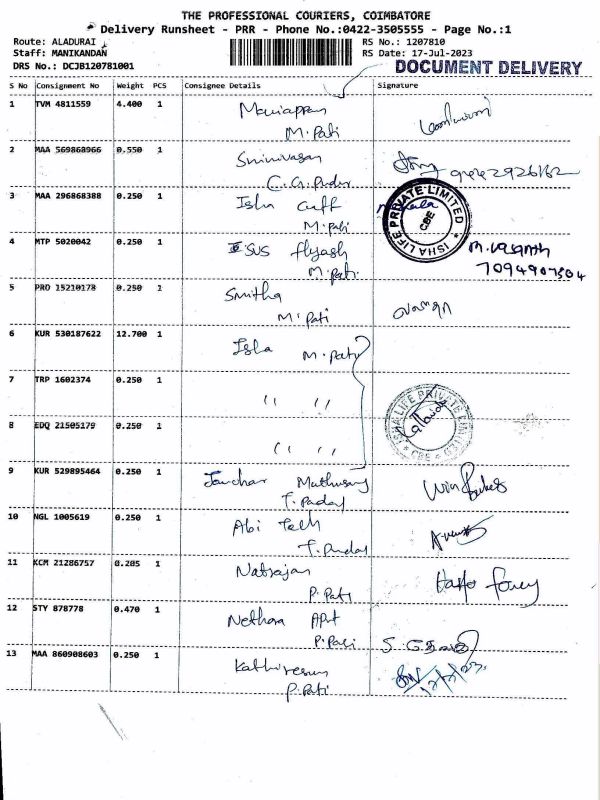 THE PROFESSIONAL COURIERS, COIMBATORE
Delivery Runsheet - PRR - Phone No.:0422-3505555 - Page No.:1
Route: ALADURAI
RS No.: 1207810
Staff: MANIKANDAN
RS Date: 17-Jul-2023
DRS No.: DCJB120781001
DOCUMENT DELIVERY
S No Consignment No Weight PCS Consignee Details Signature
1 TVM 4811559 4.400 1 Mariappan
M.Pati
2 MAA 569868966 0.550 1 Srinivasan
3 MAA 296868388 0.250 1 Isha
M.Pati
ISHA LIFE PRIVATE LIMITED
CBE
4 MTP 5020042 0.250 1 SUS flyash
M.Pati
M.Vasanth
7094907504
5 PRO 15210178 0.250 1 Smitha
M.Pati
6 KUR 530187622 12.700 1 Isha
M.Pati
7 TRP 1602374 0.250 1 " "
8 EDQ 21505179 0.250 1 " "
ISHA LIFE PRIVATE LIMITED
CBE
9 KUR 529895464 0.250 1
10 NGL 1005619 0.250 1 Abi Tech
11 KCM 21286757 0.285 1 Natrajan
P.Pati
12 STY 878778 0.470 1 Nethra Apt
P.Pati
13 MAA 860908603 0.250 1 Kathiresan
P.Pati